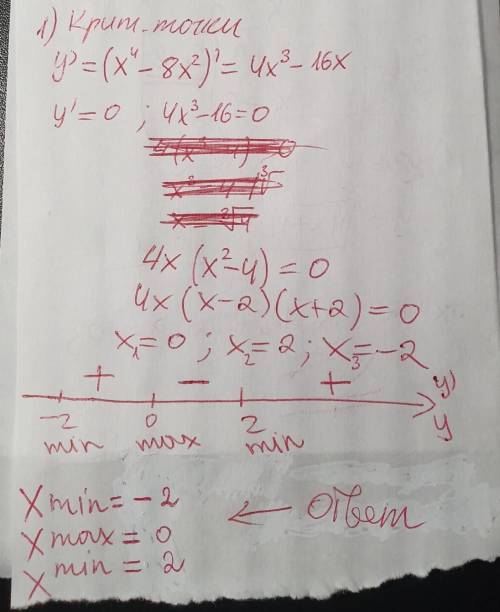 1) Крит. точки
y' = (x⁴ - 8x²)' = 4x³ - 16x
y' = 0 ; 4x³ - 16 = 0
4x (x² - 4) = 0
4x (x - 2)(x + 2) = 0
x₁ = 0 ; x₂ = 2 ; x₃ = -2
+ − + y'
-2 0 2 y
min max min
x min = - 2
x max = 0 ← Ответ
x min = 2